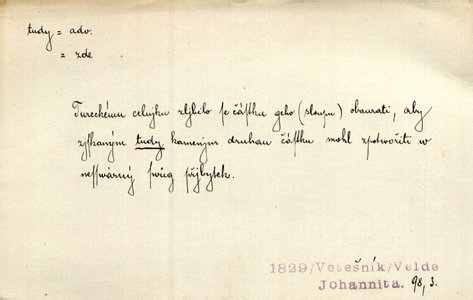 tudy = adv.
= zde
Tureckému celnjku zljbilo se částku geho (sloupu) obaurati, aby
zjskaným tudy kamenjm druhau částku mohl zpotvořiti w
nesswárný swůg přjbytek.
1829/Vetešník/Velde
Johannita. 98, 3.